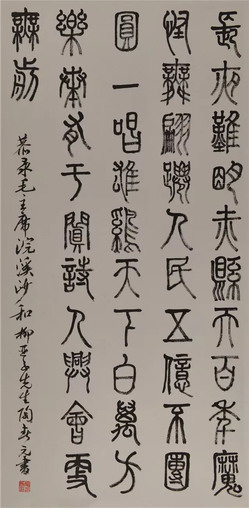 長夜難明赤縣天百年魔
怪舞翩躚人民五億不團
圓一唱雄鷄天下白萬方
樂奏有于闐詩人興會更
無前
恭录毛主席浣溪沙和柳亚子先生陶元書